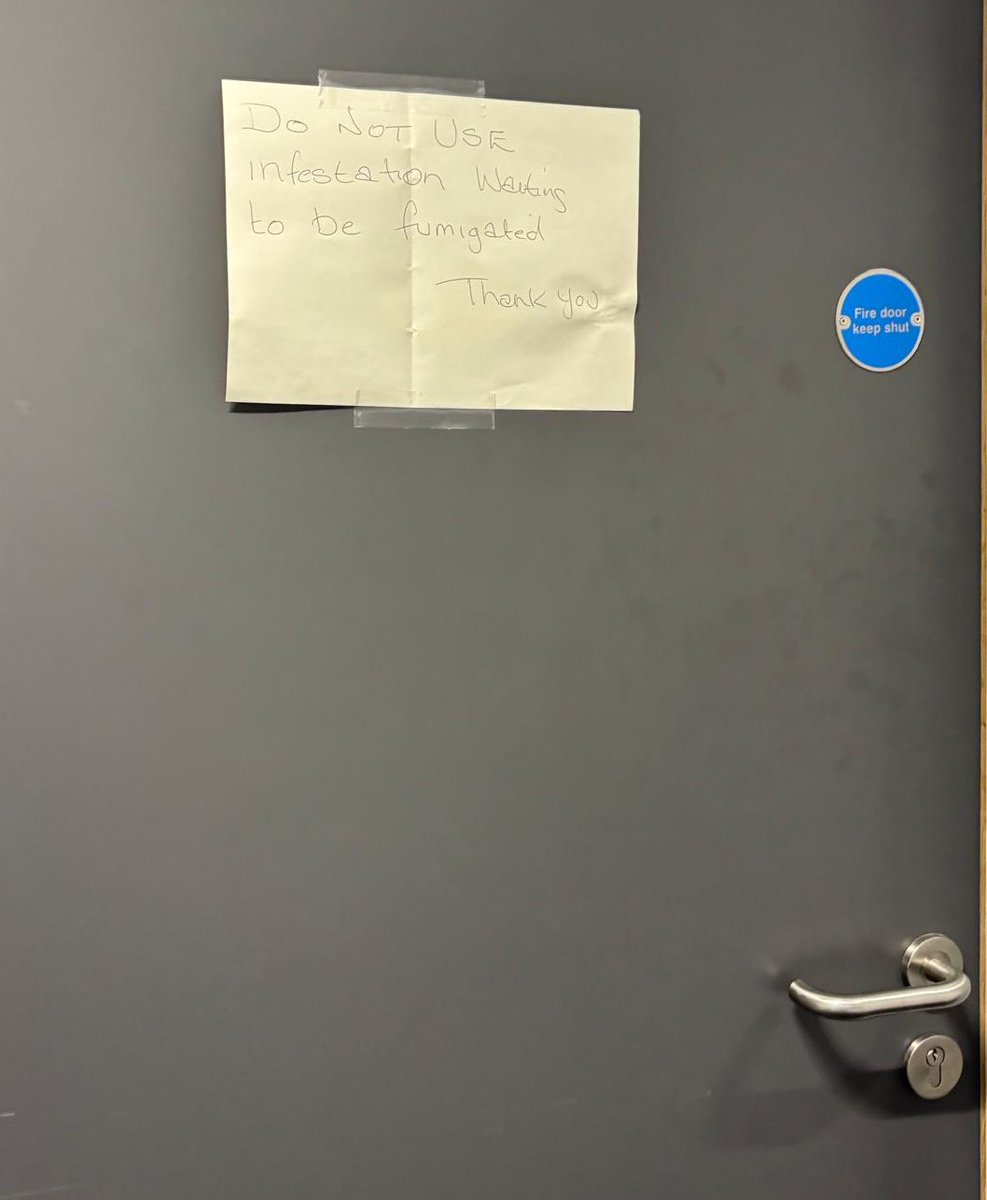 Do NOT USE
infestation Waiting
to be fumigated
Thank you
Fire door
keep shut